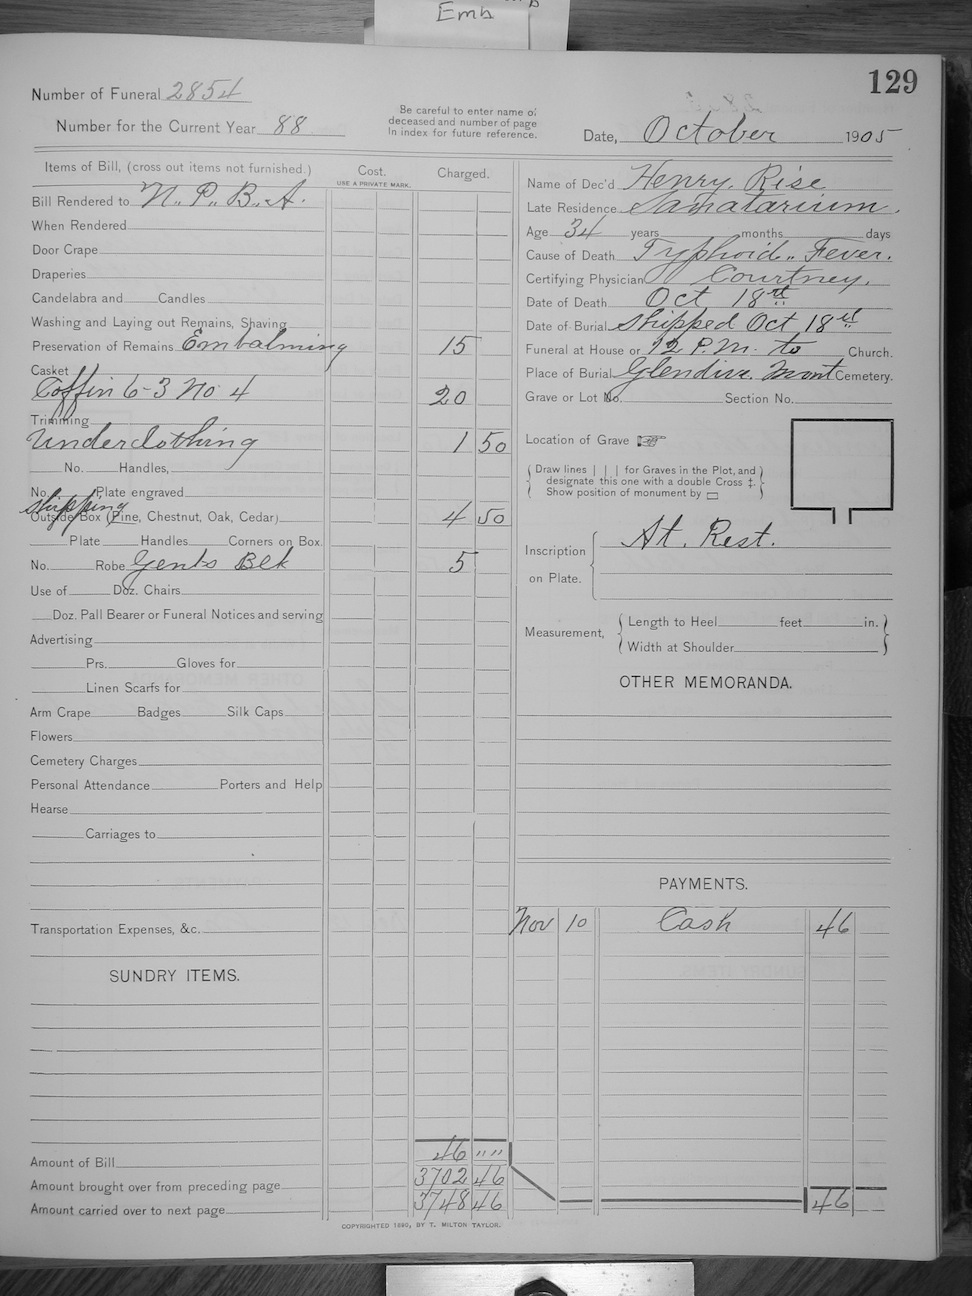 Emb
129
Number of Funeral 2854
Number for the Current Year 88
Be careful to enter name of
deceased and number of page
in index for future reference.
Date, October 1905
Items of Bill, (cross out items not furnished.)
Cost.
USE A PRIVATE MARK.
Charged.
Bill Rendered to N. P. B. A.
When Rendered
Door Crape
Draperies
Candelabra and Candles
Washing and Laying out Remains, Shaving
Preservation of Remains Embalming 15
Casket
Coffin 6-3 No 4 20
Trimming
Underclothing 1 50
No. Handles,
No. Plate engraved
shipping
Outside Box (Pine, Chestnut, Oak, Cedar) 4 50
Plate Handles Corners on Box.
No. Robe Gents Blk 5
Use of Doz. Chairs
Doz. Pall Bearer or Funeral Notices and serving
Advertising
Prs. Gloves for
Linen Scarfs for
Arm Crape Badges Silk Caps
Flowers
Cemetery Charges
Personal Attendance Porters and Help
Hearse
Carriages to
Transportation Expenses, &c.
SUNDRY ITEMS.
Amount of Bill 46 " "
Amount brought over from preceding page 3702 46
Amount carried over to next page 3748 46
COPYRIGHTED 1890, BY T. MILTON TAYLOR.
Name of Dec'd Henry. Rise
Late Residence Sanatarium.
Age 34 years months days
Cause of Death Typhoid.. Fever.
Certifying Physician Courtney.
Date of Death Oct 18
Date of Burial shipped Oct 18
Funeral at House or 12 P.M. to Church.
Place of Burial Glendive. Mont Cemetery.
Grave or Lot No. Section No.
Location of Grave
Draw lines | | | for Graves in the Plot, and
designate this one with a double Cross ‡.
Show position of monument by ▭
Inscription At. Rest.
on Plate.
Measurement,
Length to Heel feet in.
Width at Shoulder
OTHER MEMORANDA.
PAYMENTS.
Nov 10 Cash 46
46